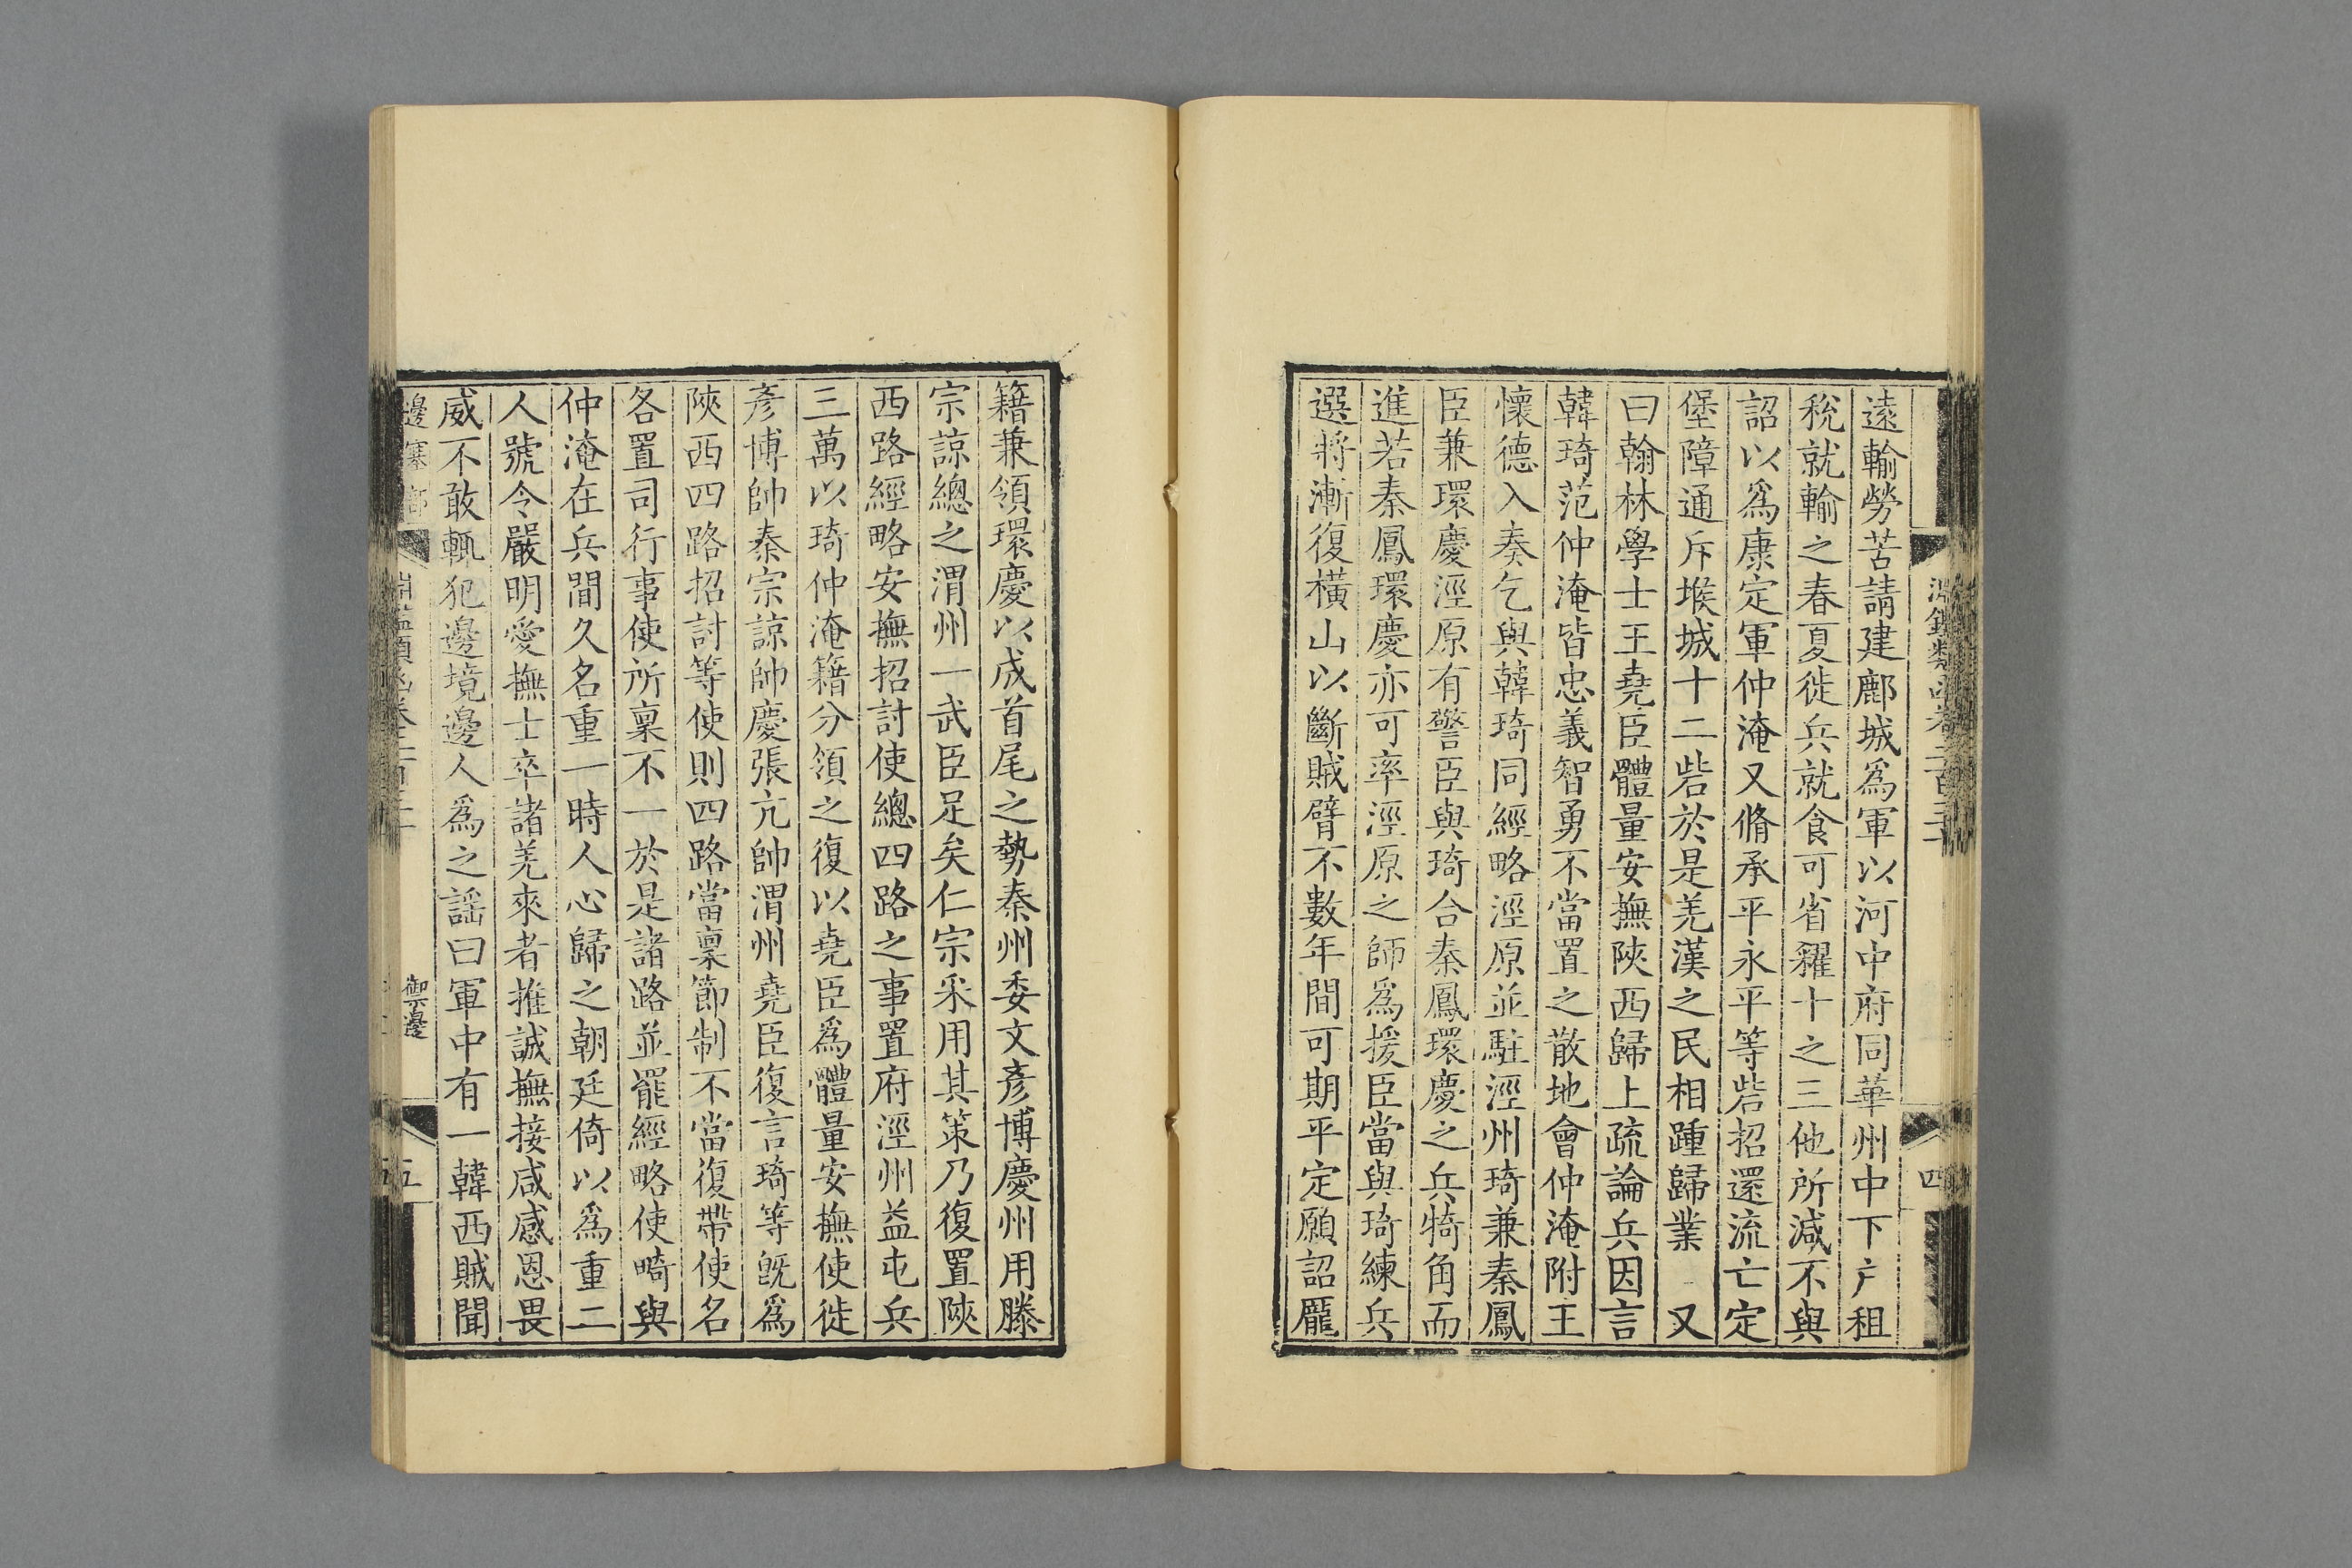 遠輸勞苦請建鄜城爲軍以河中府同華州中下户租
稅就輸之春夏徙兵就食可省糴十之三他所減不與
詔以爲康定軍仲淹又脩承平永平等砦招還流亡定
堡障通斥堠城十二砦於是羌漢之民相踵歸業 又
曰翰林學士王堯臣體量安撫陝西歸上疏論兵因言
韓琦范仲淹皆忠義智勇不當置之散地會仲淹附王
懷德入奏乞與韓琦同經略涇原並駐涇州琦兼秦鳳
臣兼環慶涇原有警臣與琦合秦鳳環慶之兵犄角而
進若秦鳳環慶亦可率涇原之師爲援臣當與琦練兵
選將漸復橫山以斷賊臂不數年間可期平定願詔龐
四
籍兼領環慶以成首尾之勢秦州委文彥博慶州用滕
宗諒總之渭州一武臣足矣仁宗采用其策乃復置陝
西路經略安撫招討使總四路之事置府涇州益屯兵
三萬以琦仲淹籍分領之復以堯臣爲體量安撫使徙
彥博帥秦宗諒帥慶張亢帥渭州堯臣復言琦等旣爲
陝西四路招討等使則四路當稟節制不當復帶使名
各置司行事使所稟不一於是諸路並罷經略使畸與
仲淹在兵間久名重一時人心歸之朝廷倚以爲重二
人號令嚴明愛撫士卒諸羌來者推誠撫接咸感恩畏
威不敢輒犯邊境邊人爲之謡曰軍中有一韓西賊聞
邊塞部
禦邊
五